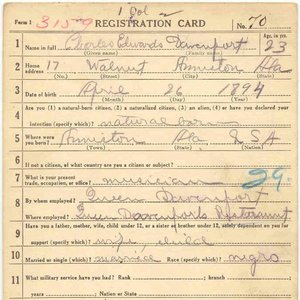 1 Col
Form 1 3159 REGISTRATION CARD No. 70
1 Name in full Charles Edwards Davenport Age, in yrs. 23
(Given name) (Family name)
2 Home address 17 Walnut Anniston Ala
(No.) (Street) (City) (State)
3 Date of birth April 26 1894
(Month) (Day) (Year)
4 Are you (1) a natural-born citizen, (2) a naturalized citizen, (3) an alien, (4) or have you declared your
intention (specify which)? natural born
5 Where were you born? Anniston Ala USA
(Town) (State) (Nation)
6 If not a citizen, of what country are you a citizen or subject?
7 What is your present trade, occupation, or office? musician 29
8 By whom employed? Queen Davenport
Where employed? Queen Davenports Restaurant
9 Have you a father, mother, wife, child under 12, or a sister or brother under 12, solely dependent on you for
support (specify which)? wife, child
10 Married or single (which)? Race (specify which)? negro
11 What military service have you had? Rank ; branch
years ; Nation or State